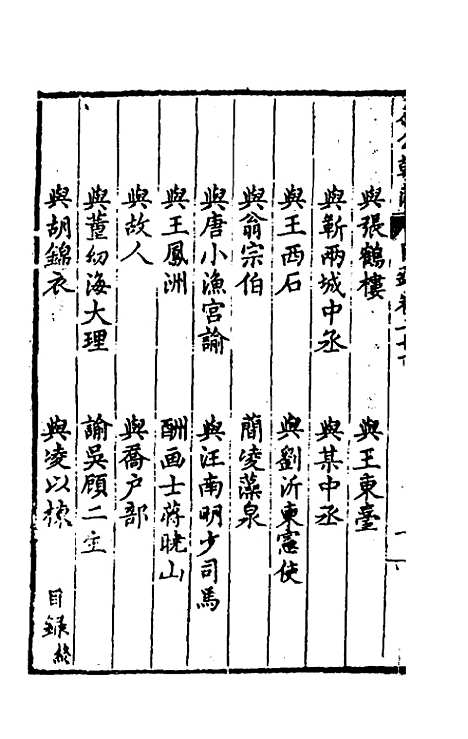 與張鶴樓　與王東臺
與靳兩城中丞　與某中丞
與王西石　與劉沂東憲使
與翁宗伯　簡凌藻泉
與唐小漁宮諭　與汪南明少司馬
與王鳳洲　酬画士蔣曉山
與故人　與喬户部
與董幼海大理　諭吳顧二主
與胡錦衣　與凌以棟
目録終